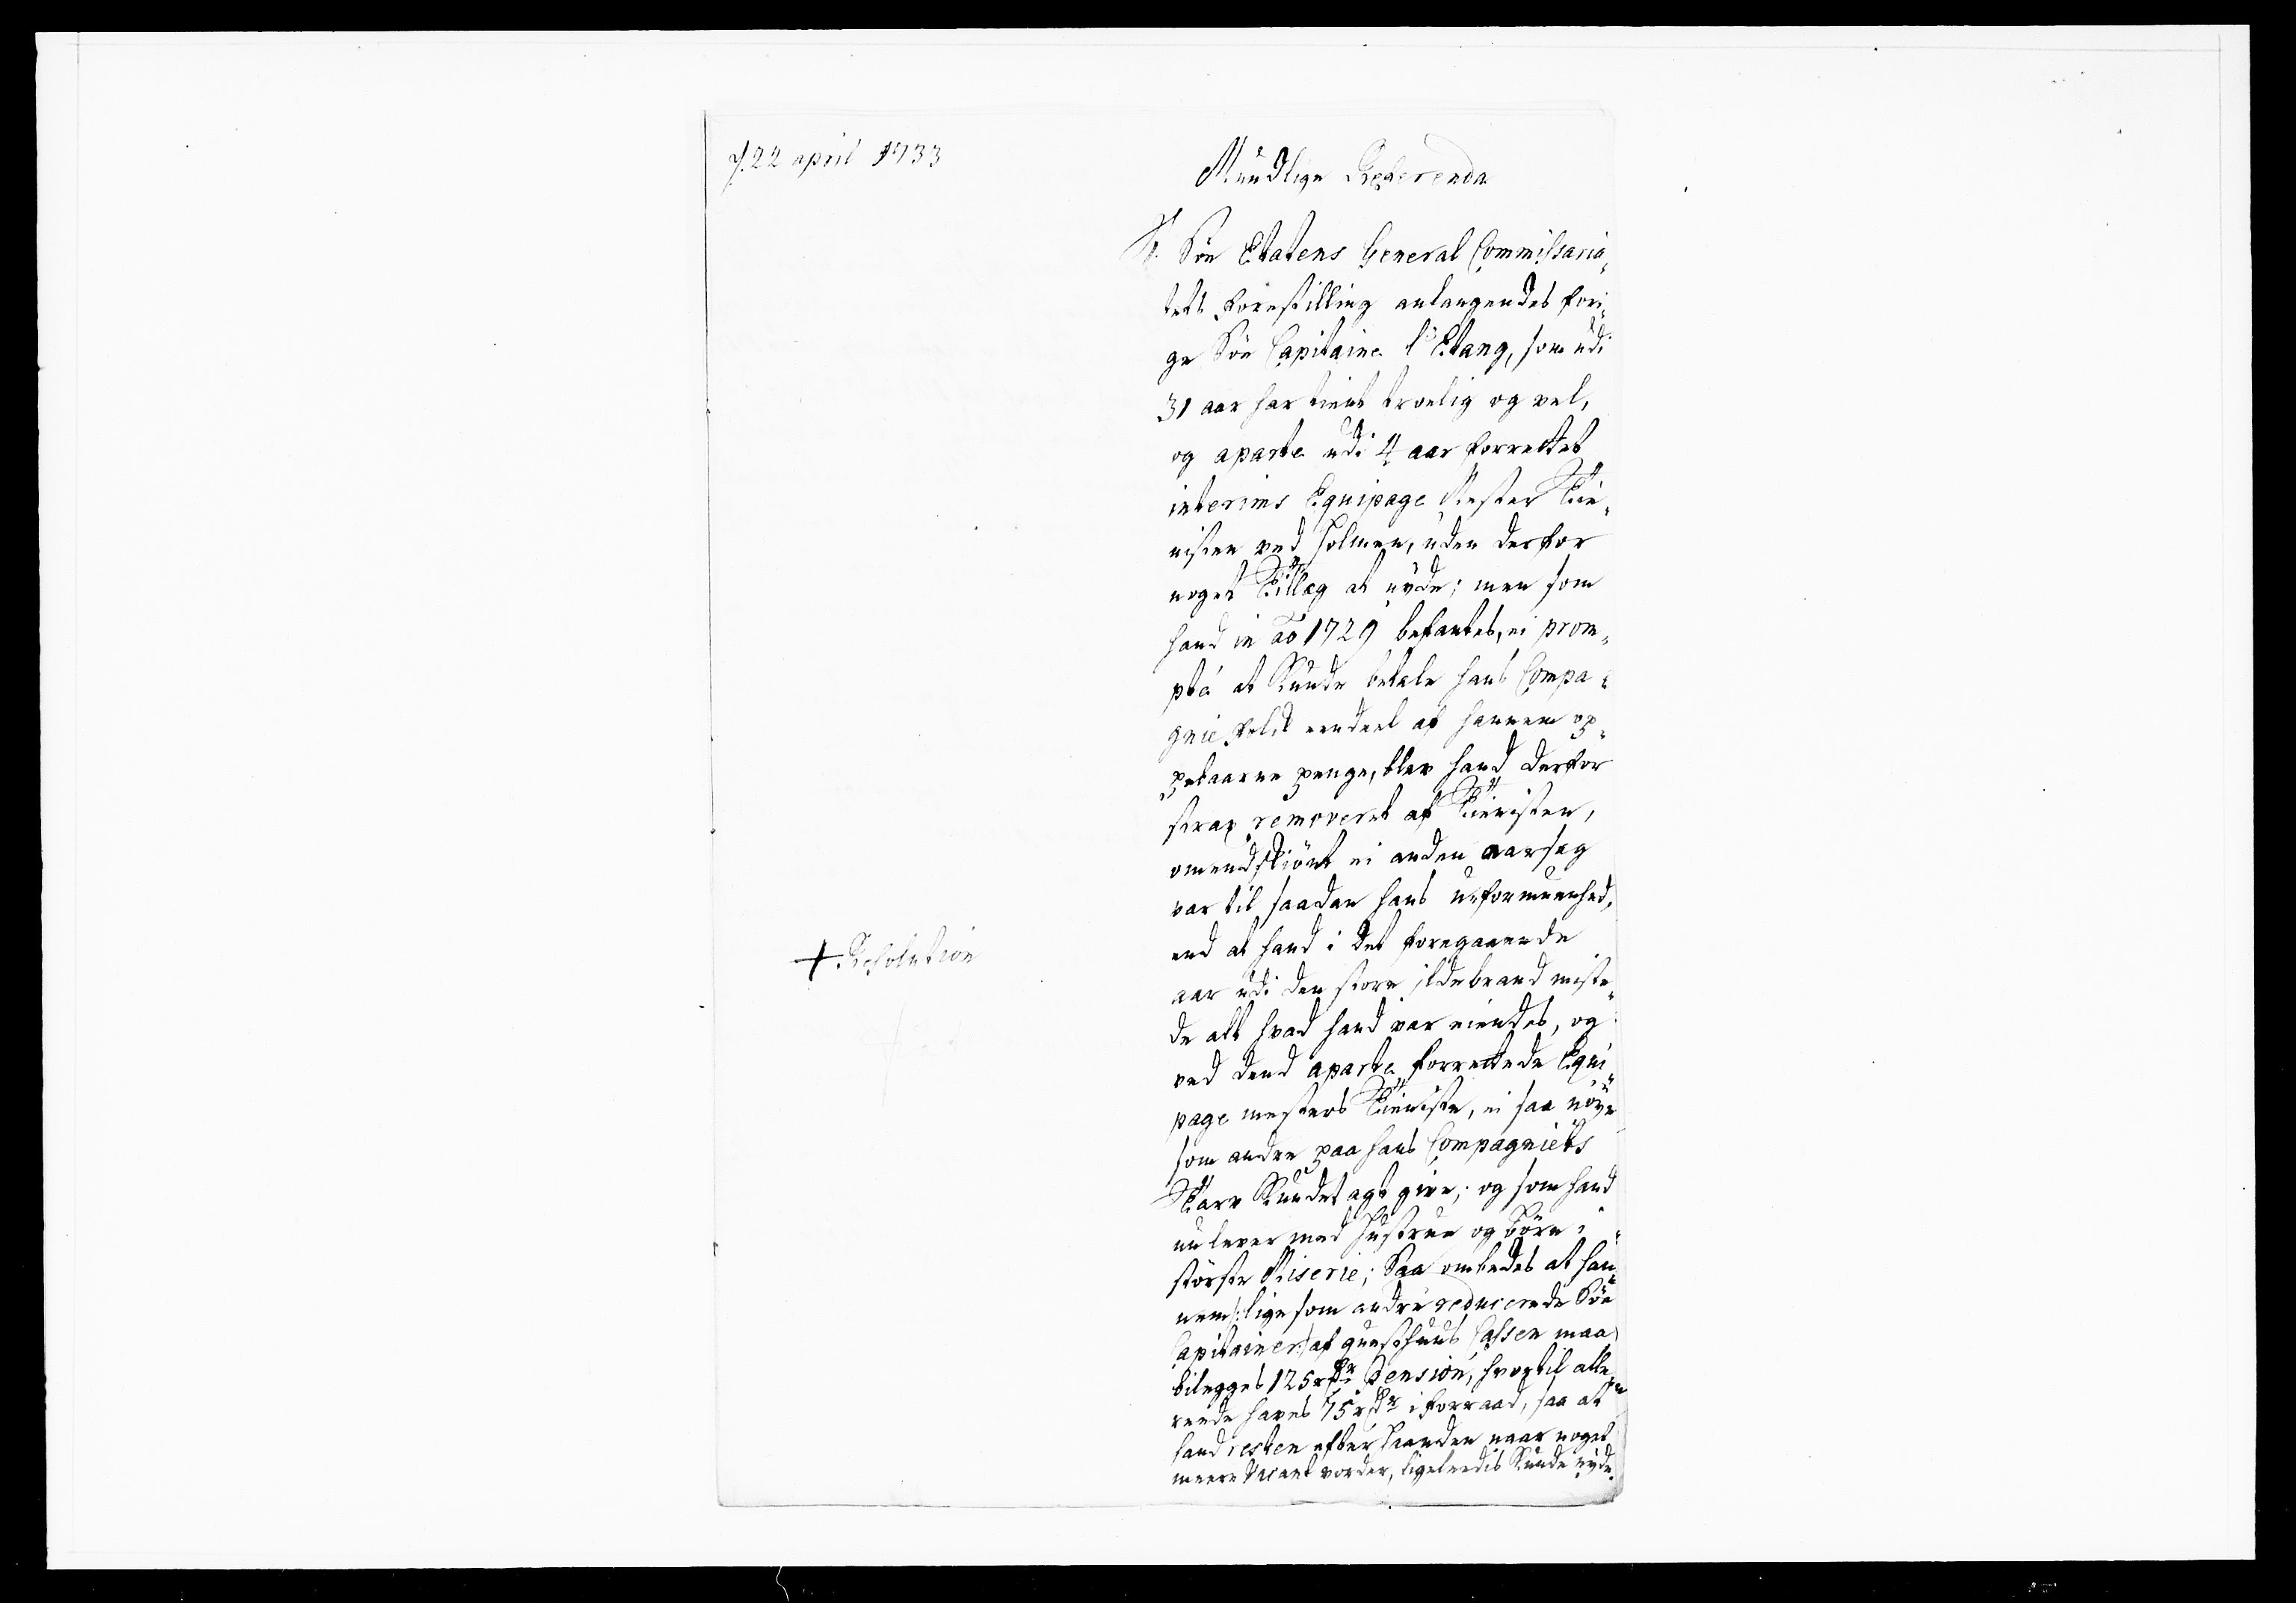 22 april 1733
Mündlige Referenda
Söe Etatens General Commissaria„
tets forestilling anlangendes fori„
ge Söe Capitaine l'Etang, som udi
31 aar har tient troelig og vel,
og aparte udi 4 aar forrettet
interims Equipage Mester Tie„
nisten ved Holmen, uden derfor
noget Tillæg at nyde; men som
hand in ao 1729 befantes, ei prom„
pte at Kunde betale hans Compa„
gnie folck eendeel af hannem op„
pebaarne penge, blev hand derfor
strax removeret af Tienisten,
omendskiönt ei anden aarsag
var til saadan hans uformuenhed,
end at hand i det foregaaende
aar udi den store ildebrand miste„
de alt hvad hand var eiendes, og
ved dend aparte forrettede Equi„
page mesters Tieniste, ei saa nöye
som andre paa hans Compagniets
Tarv Kundet agt give; og som hand
nu lever med Hustrue og Börn i
störste Miserie; Saa ombedes at han„
nem /: lige som andre reducerede Söe
Capitainer :/ af quæsthuus Cassen maa
bilegges 125 rdr Pension, hvortil alle„
reede haves 75 rdr i forraad, saa at
hand resten efter Haanden naar noget
meere Vacant vorder, ligeleedis Kunde nyde.
+ Resolution